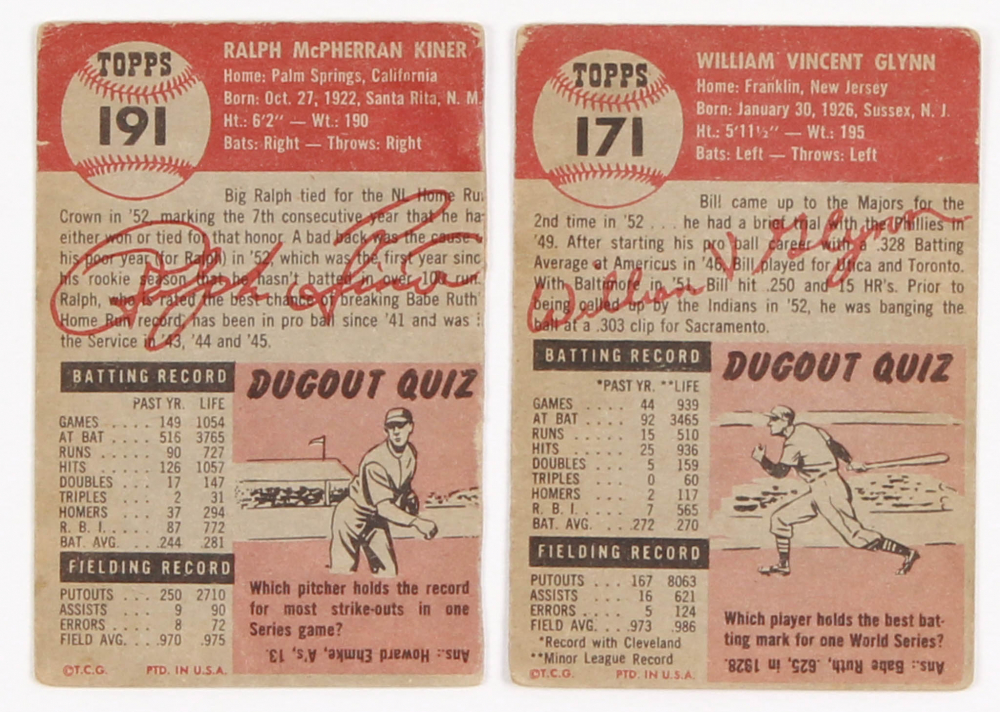 TOPPS
191
RALPH McPHERRAN KINER
Home: Palm Springs, California
Born: Oct. 27, 1922, Santa Rita, N. M.
Ht.: 6'2" — Wt.: 190
Bats: Right — Throws: Right
Big Ralph tied for the NL Home Ru
Crown in '52, marking the 7th consecutive year that he ha
either won or tied for that honor. A bad back was the cause
his poor year (for Ralph) in '52, which was the first year sinc
his rookie season that he hasn't batted in over 100 run
Ralph, who is rated the best chance of breaking Babe Ruth'
Home Run record, has been in pro ball since '41 and was
the Service in '43, '44 and '45.
Ralph Kiner
BATTING RECORD
PAST YR. LIFE
GAMES .... 149 1054
AT BAT .... 516 3765
RUNS .... 90 727
HITS .... 126 1057
DOUBLES .... 17 147
TRIPLES .... 2 31
HOMERS .... 37 294
R. B. I. .... 87 772
BAT. AVG. ... .244 .281
FIELDING RECORD
PUTOUTS .... 250 2710
ASSISTS .... 9 90
ERRORS .... 8 72
FIELD AVG. . .970 .975
©T.C.G. PTD. IN U.S.A.
DUGOUT QUIZ
Which pitcher holds the record
for most strike-outs in one
Series game?
Ans.: Howard Ehmke, A's, 13.
TOPPS
171
WILLIAM VINCENT GLYNN
Home: Franklin, New Jersey
Born: January 30, 1926, Sussex, N. J.
Ht.: 5'11½" — Wt.: 195
Bats: Left — Throws: Left
Bill came up to the Majors for the
2nd time in '52 . . . he had a brief trial with the Phillies in
'49. After starting his pro ball career with a .328 Batting
Average at Americus in '46, Bill played for Utica and Toronto.
With Baltimore in '51, Bill hit .250 and 15 HR's. Prior to
being called up by the Indians in '52, he was banging the
ball at a .303 clip for Sacramento.
William V Glynn
BATTING RECORD
*PAST YR. **LIFE
GAMES .... 44 939
AT BAT .... 92 3465
RUNS .... 15 510
HITS .... 25 936
DOUBLES .... 5 159
TRIPLES .... 0 60
HOMERS .... 2 117
R. B. I. .... 7 565
BAT. AVG. ... .272 .270
FIELDING RECORD
PUTOUTS ... 167 8063
ASSISTS .... 16 621
ERRORS .... 5 124
FIELD AVG. . .973 .986
*Record with Cleveland
**Minor League Record
©T.C.G. PTD. IN U.S.A.
DUGOUT QUIZ
Which player holds the best bat-
ting mark for one World Series?
Ans.: Babe Ruth, .625, in 1928.